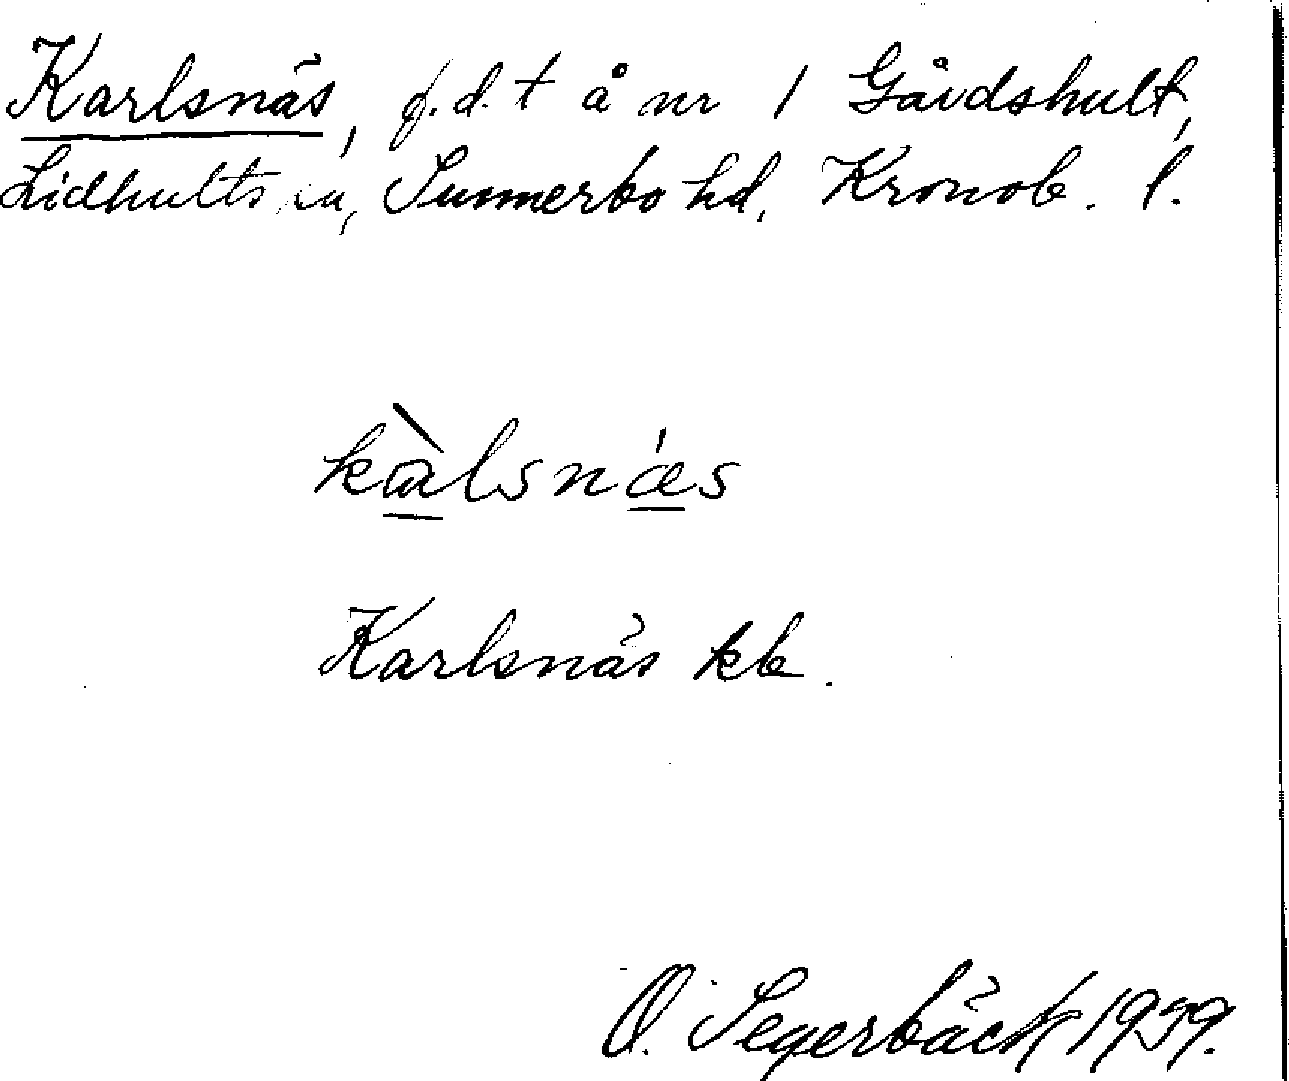 Karlsnäs, f.d. t å nr 1 Gåvdshult,
Lidhults sn, Sunnerbo hd, Kronob. l.
kàlsnǽs
Karlsnäs kb.
O. Segerbäck 1959.